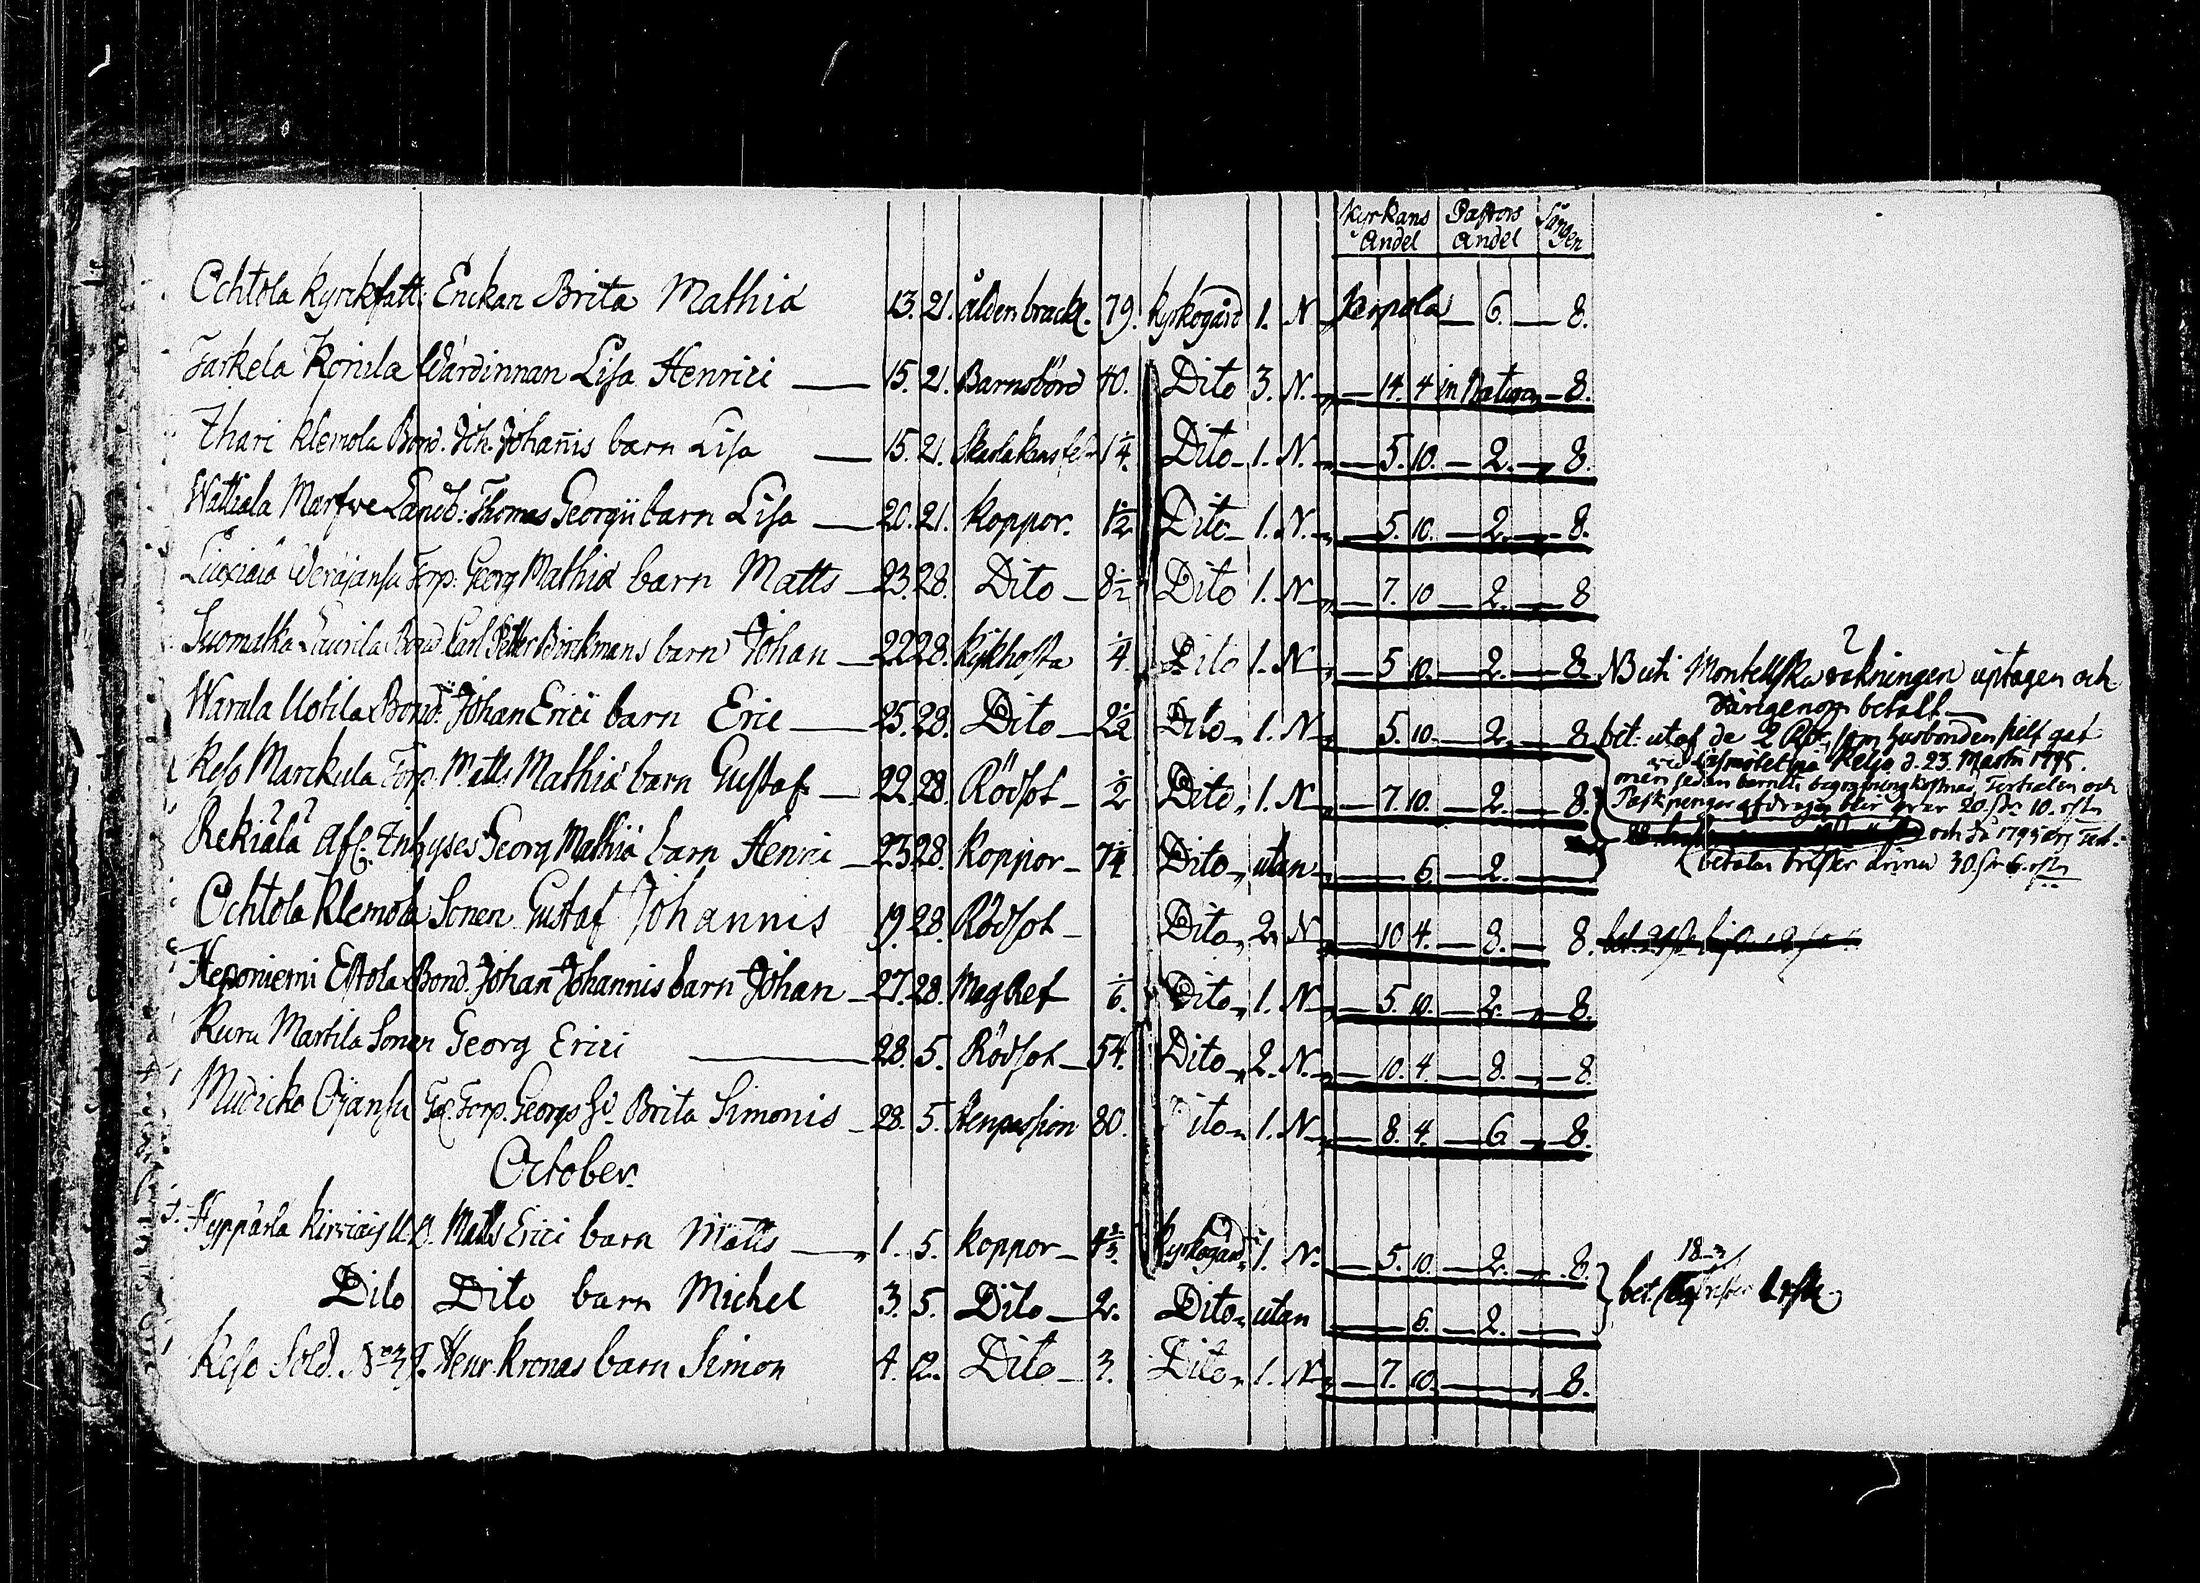 Kyrkans Andel Pastors Andel Sången
Ochtola Kyrckfatt: Enckan Brita Mathiæ 13. 21. Ålderdombräckl. 79. Kyrkogård 1. N 6. 8.
Tarkela Konila Wärdinnan Lisa Henrici 15. 21. Barnsbörd 40. Dito 3. N. 14. 4 in Natura 8.
Ihari Klemola Bond. Joh. Johannis barn Lisa 15. 21. Skarlakansfeb 1 1/4. Dito 1. N. 5. 10. 2. 8.
Wattiala Marfve Landb: Thomas Georgii barn Lisa 20. 21. Koppor. 1 1/2 Dito 1. N. 5. 10. 2. 8.
Liuxiala Werajänsu Torp. Georg Mathiæ barn Matts 23. 28. Dito 8 1/2 Dito 1. N 7. 10 2. 8
Suomatka Laurila Bond Carl Petter Birckmans barn Johan 22 28. Kikhosta 1/4. Dito 1. N 5 10. 2. 8.
NB uti räkningen uptagen och
därigenom betalt
Warala Uotila Bond. Johan Erici barn Eric 25. 28. Dito 2 1/2 Dito 1. N 5. 10. 2. 8
bet: utaf de 2 Rdr, som husbonden sielf gaf
Kejo d. 23. Martii 1795.
Keso Marckula Torp. Matts Mathiæ barn Gustaf 22 28. Rödsot 1/2 Dito 1. N 7. 10. 2. 8.
men sedan barnets begrafningskostnad, Tertialen och
Påskpengar afdragas blir qvar 20. sk. 10. rst
Rekiälä afsk. Inhyses Georg Mathiæ barn Henric 23 28. Koppor 7 1/4 Dito utan 6. 2.
och för 1795 års
betalas brister ännu 30. sk 6. rst
Ochtola Klemola Sonen Gustaf Johannis 19. 28. Rödsot Dito 2. N 10 4. 8. 8.
Heponiemi Eskola Bond. Johan Johannis barn Johan 27. 28. Mag Ref 1/6. Dito 1. N 5. 10. 2. 8.
Ruru Martila Sonen Georg Erici 28. 5. Rödsot 54. Dito 2. N. 10. 4. 8. 8.
Mudicko Ojansu Torp. Georgs Brita Simonis 28. 5. Stenpassion 80. Dito 1. N 8. 4. 6 8.
October.
Hyppärla Matts Erici barn Matts 1. 5. Koppor 4 2/3. Kyrkogård 1. N. 5. 10. 2. 8.
Dito Dito barn Michel 3. 5. Dito 2. Dito utan 6. 2.
bet.
Keso Sold. No 39. Henr. Kronas barn Simon 4. 12. Dito 3. Dito 1. N 7. 10. 8.